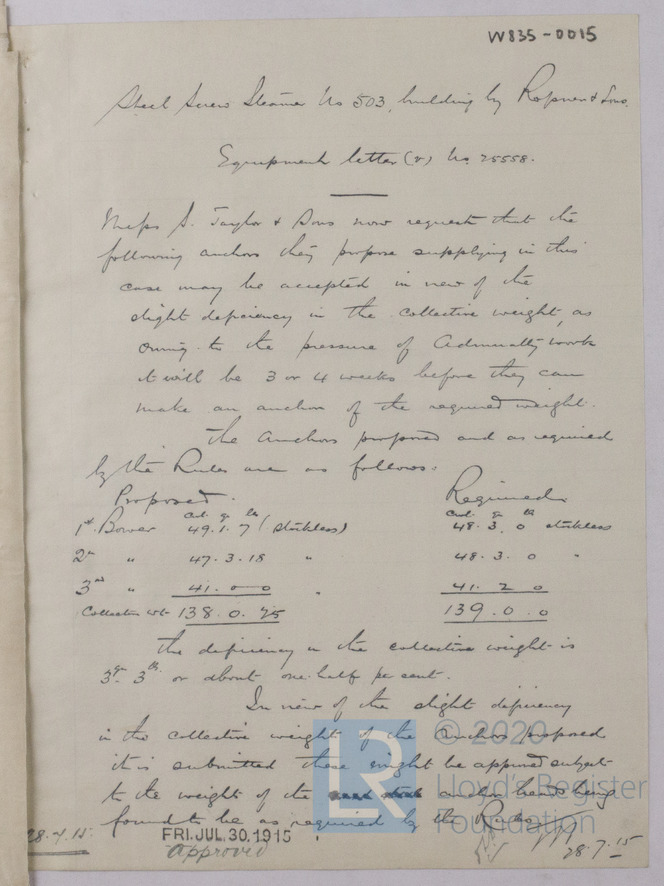 W835-0015
Steel Screw Steamer No 503, building by Ropner & Sons.
Equipment letter (v) No. 25558.
Messrs S. Taylor & Sons now request that the
following anchors they propose supplying in this
case may be accepted in view of the
slight deficiency in the collective weight, as
owing to the pressure of Admiralty work
it will be 3 or 4 weeks before they can
make an anchor of the required weight.
The Anchors proposed and as required
by the Rules are as follows:
Proposed. Required.
Cwt. qr lb Cwt. qr lb
1st Bower 49.1.7 (Stockless) 48.3.0 stockless
2nd " 47.3.18 " 48.3.0 "
3rd " 41.0.0 " 41.2.0
Collective wt. 138.0.25 139.0.0
The deficiency in the collective weight is
3qr 3lb or about one half per cent.
In view of the slight deficiency
in the collective weight of the anchors proposed
it is submitted these might be approved subject
to the weight of the anchor heads being
found to be as required by the Rules
28.7.15
FRI. JUL. 30. 1915
Approved
28.7.15
© 2020
Lloyd's Register
Foundation
LR